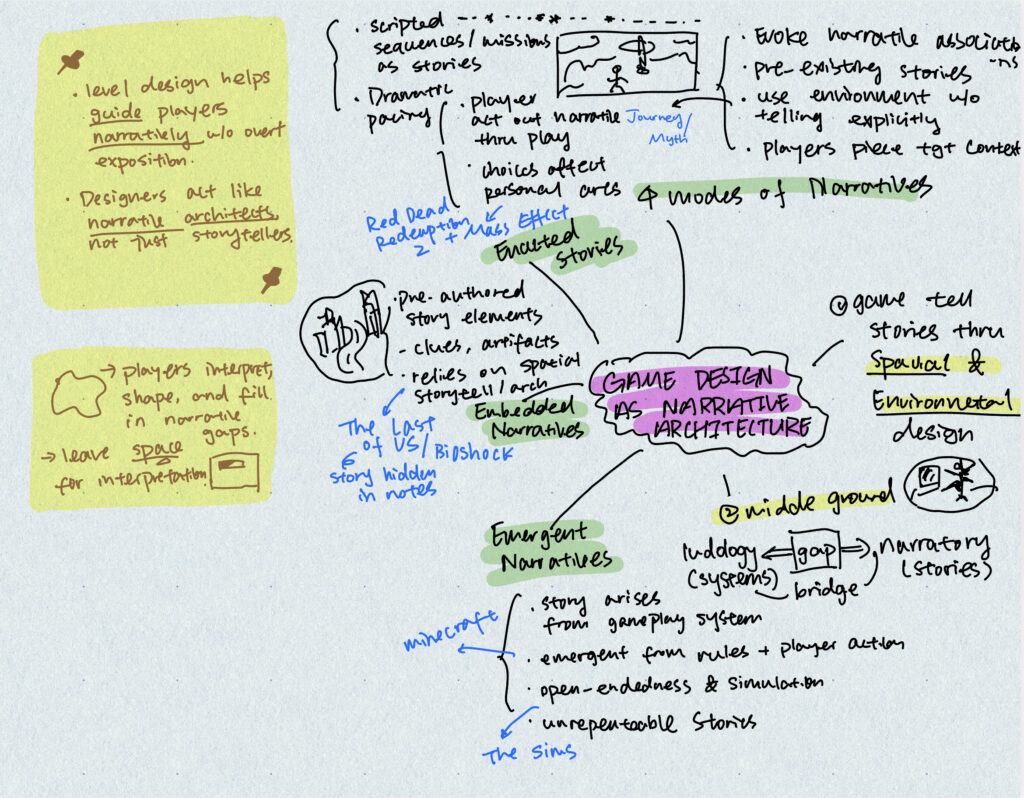 · level design helps
guide players
narratively w/o overt
exposition.
· Designers act like
narrative architects,
not just storytellers.
→ players interpret,
shape, and fill
in narrative
gaps.
→ leave space
for interpretation
· scripted
sequences/missions
as stories
· Dramatic
pacing
· player
act out narrative
thru play
· choices affect
personal arcs
Red Dead
Redemption
2 + Mass Effect
Enacted
Stories
Journey/
Myth
· Evoke narrative associati
-ns
· pre-existing stories
· use environment w/o
telling explicitly
· players piece tgt context
4 modes of Narratives
· pre-authored
story elements
- clues, artifacts
· relies on spatial
storytell/arch
Embedded
Narratives
The Last
of US/Bioshock
story hidden
in notes
GAME DESIGN
AS NARRATIVE
ARCHITECTURE
① game tell
stories thru
Spatial &
Environmental
design
② middle ground
luddology
(systems)
gap
narratory
(stories)
bridge
Emergent
Narratives
· story arises
from gameplay system
· emergent from rules + player action
· open-endedness & simulation
· unrepeatable stories
minecraft
The Sims